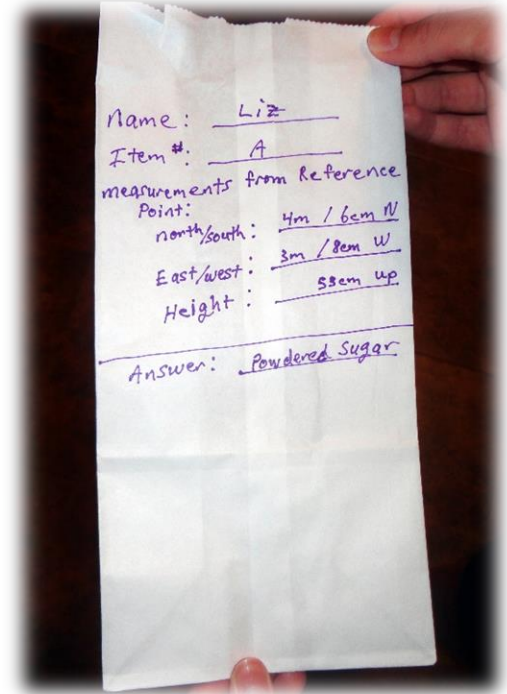 Name: Liz
Item #: A
measurements from Reference
Point:
north/south: 4m / 6cm N
East/west: 3m / 8cm W
Height: 53cm up
Answer: Powdered Sugar